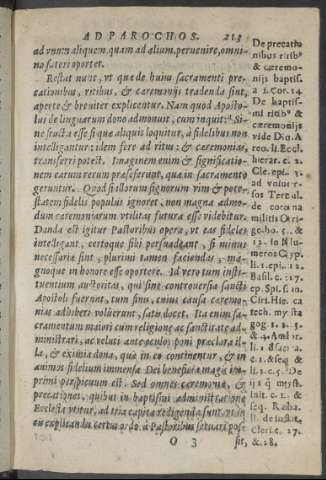 AD PAROCHOS. 213
ad vnum aliquem, quam ad alium, peruenire, omni-
no fateri oportet.
Restat nunc, vt quæ de huius sacramenti pre-
cationibus, ritibus, & cæremonijs tradenda sint,
aperte & breuiter explicentur. Nam quod Aposto-
lus de linguarum dono admonuit, cum inquit: Si-
ne fructu esse si quæ aliquis loquitur, à fidelibus non
intelligantur: idem fere ad ritus, & cæremonias,
transferri potest. Imaginem enim & significatio-
nem earum rerum præseferunt, quæ in sacramento
geruntur. Quod si illorum signorum vim & pote-
statem fidelis populus ignoret, non magna admo-
dum cæremoniarum vtilitas futura esse videbitur.
Danda est igitur Pastoribus opera, vt eas fideles
intelligant, certoque sibi persuadeant, si minus
necessariæ sint, plurimi tamen faciendas, ma-
gnoque in honore esse oportere. Id vero tum insti-
tuentium auctoritas, qui sine controuersia sancti
Apostoli fuerunt, tum finis, cuius causa cæremo-
nias adhiberi voluerunt, satis docet. Ita enim sa-
cramentum maiori cum religione ac sanctitate ad-
ministrari, ac veluti ante oculos poni præclara il-
la, & eximia dona, quæ in eo continentur, & in
animos fidelium immensa Dei beneficia magis im-
primi perspicuum est. Sed omnes cæremoniæ, &
precationes, quibus in baptismi administratione
Ecclesia vtitur, ad tria capita redigendæ sunt,
in explicandis certus ordo à Pastoribus seruari pos-
O 3 sit,
De precatio
nibus ritibꝰ
& cæremo-
nijs baptis.
a 1. Cor. 14.
De baptis-
mi ritibꝰ &
cæremonijs
vide Dio. A
reo. li. Eccl.
hierar. c. 2.
Cle. epi. 3.
ad vniuer-
sos Tertul.
de corona
militis Ori-
ge. ho. 5. &
12. in Nu-
meros Cyp.
li. 1. epi. 12.
Basil. c. 27.
ep. Spi. s. in
Ciri. Hie. ca
tech. mysta
gog. 1. 2. 3.
& 4. Ambr.